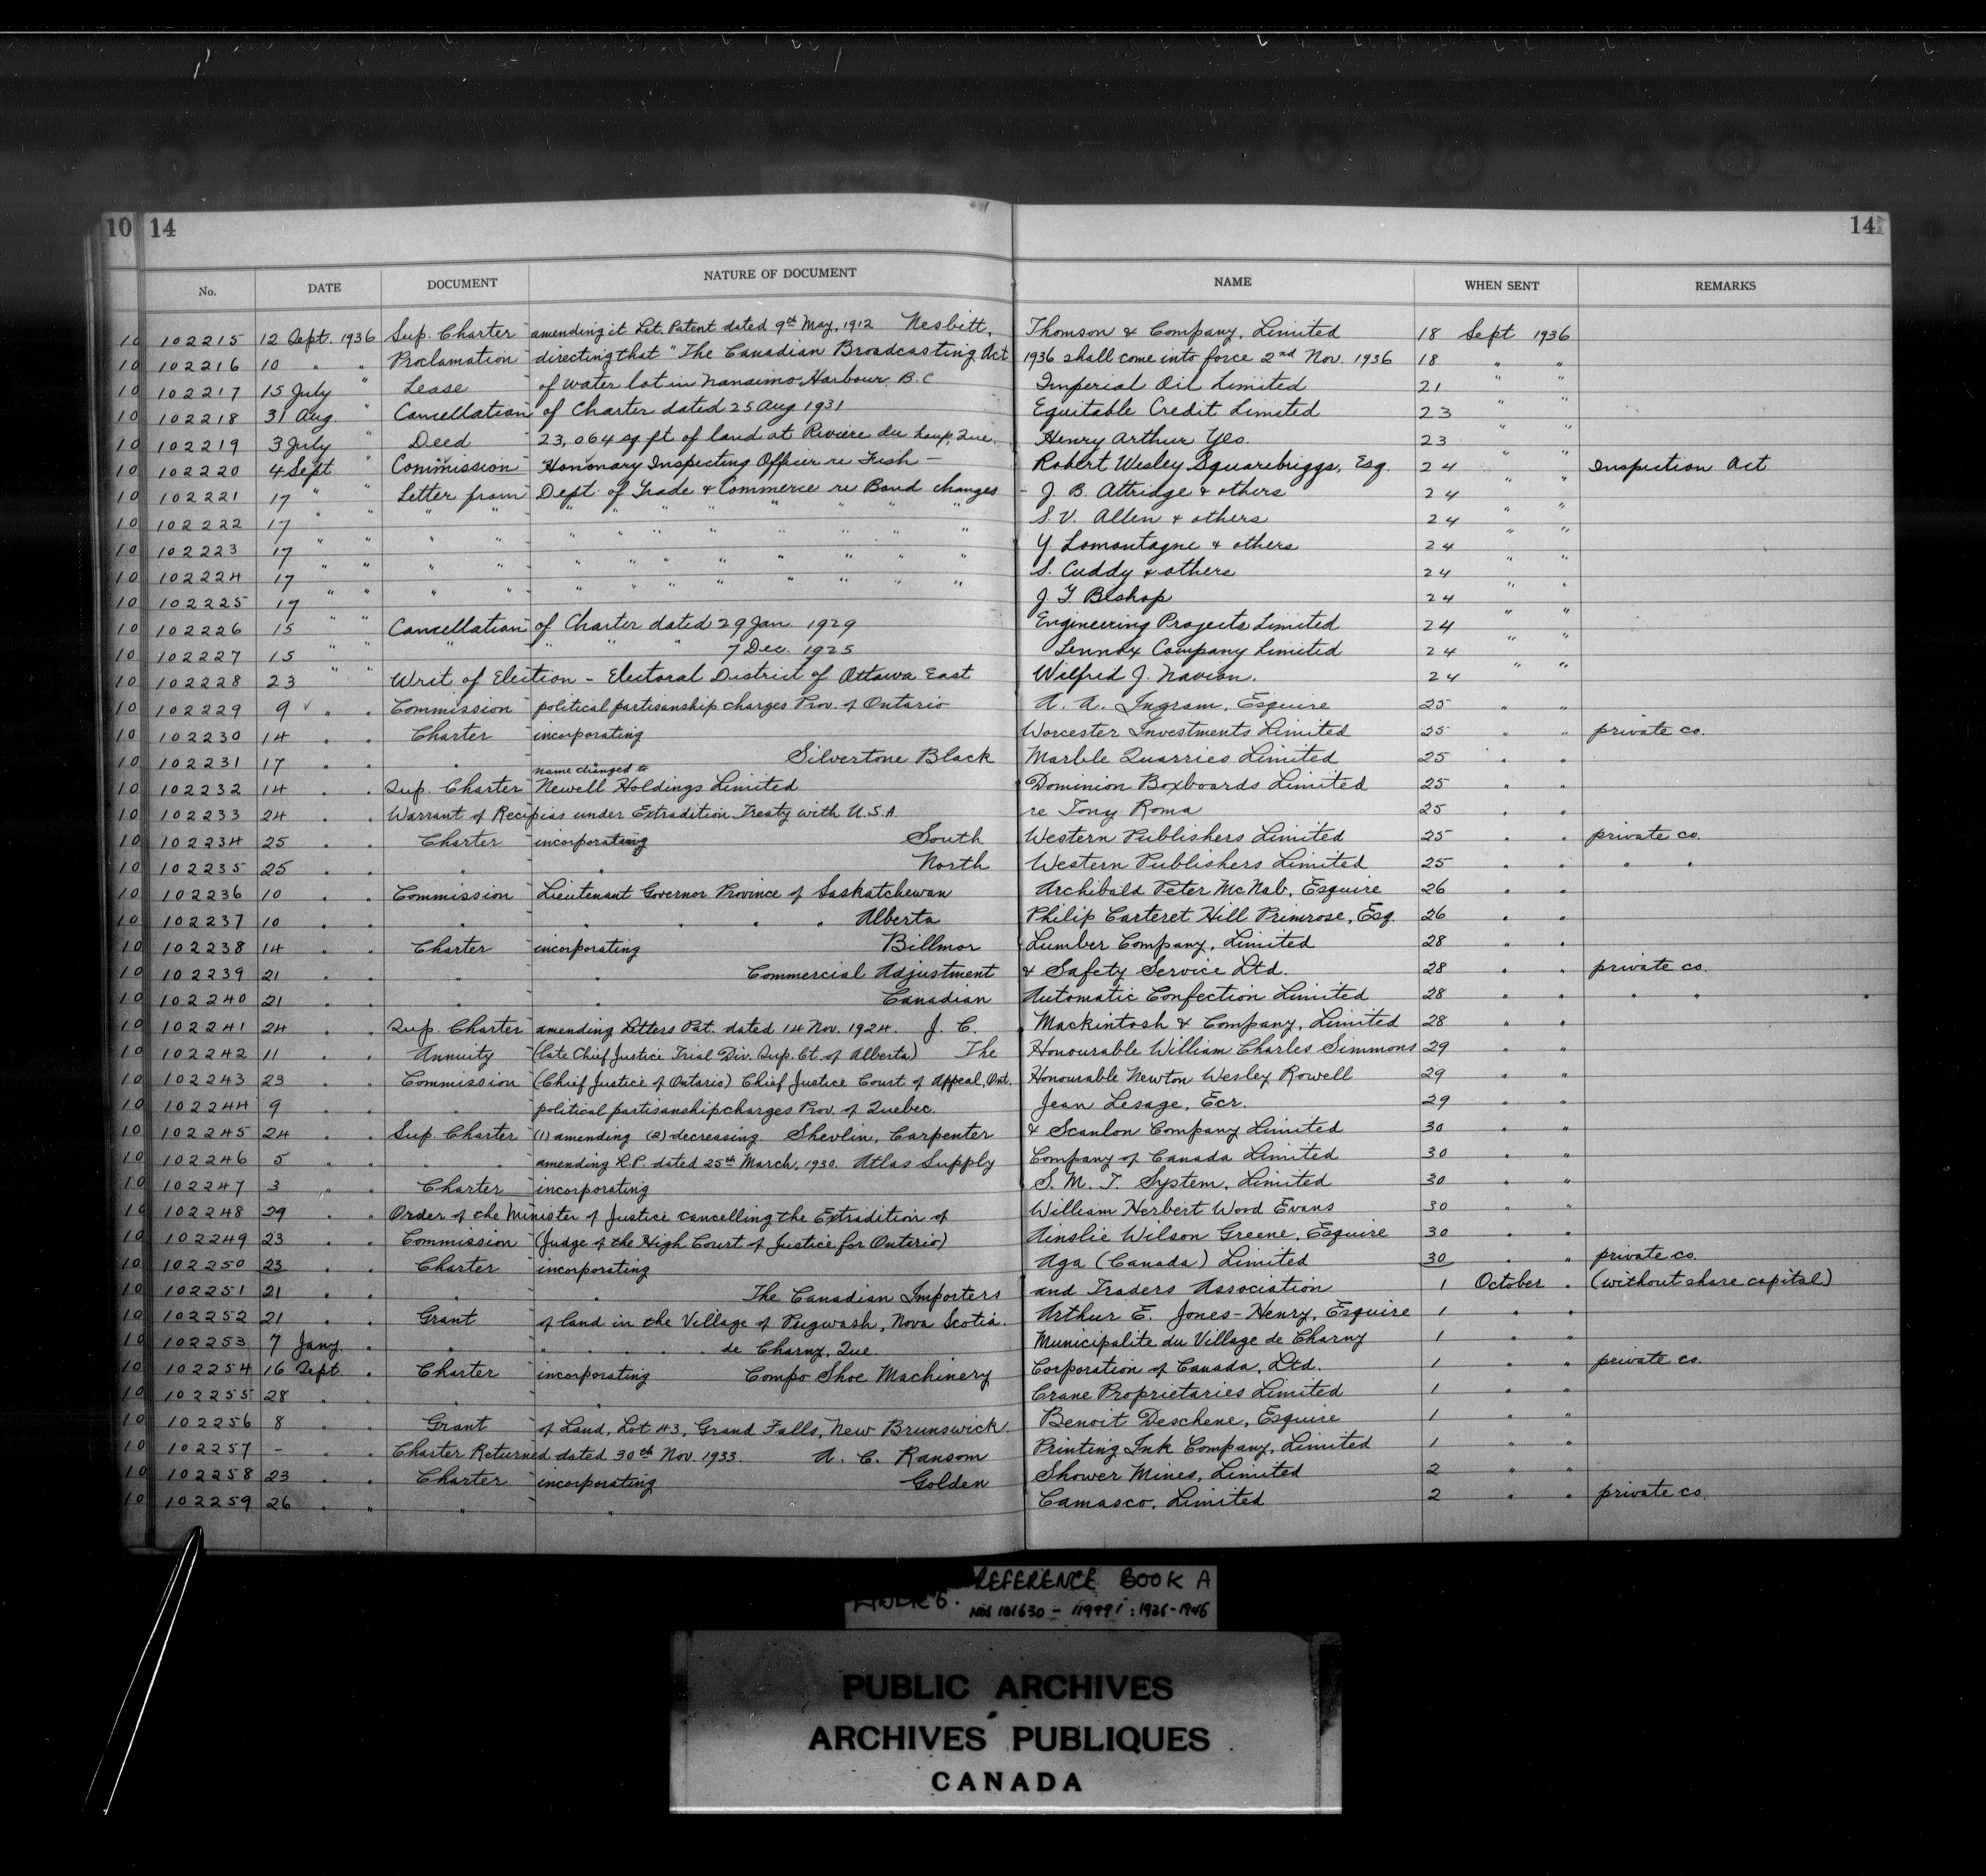 10 14 14
No. DATE DOCUMENT NATURE OF DOCUMENT NAME WHEN SENT REMARKS
10 102215 12 Sept. 1936 Sup. Charter amending it Let. Patent dated 9th May, 1912 Nesbitt, Thomson & Company, Limited 18 Sept 1936
10 102216 10 " " Proclamation directing that "The Canadian Broadcasting Act 1936 shall come into force 2nd Nov. 1936 18 " "
10 102217 15 July " Lease of water lot in Nanaimo Harbour B.C Imperial Oil Limited 21 " "
10 102218 31 Aug. " Cancellation of Charter dated 25 Aug 1931 Equitable Credit Limited 23 " "
10 102219 3 July " Deed 23,064 sq ft of land at Riviere du Loup, Que. Henry Arthur Yeo. 23 " "
10 102220 4 Sept " Commission Honorary Inspecting Officer re Fish - Robert Wesley Squarebriggs, Esq. 24 " " Inspection Act
10 102221 17 " " Letter from Dept. of Trade & Commerce re Bond changes - J. B. Attridge & others 24 " "
10 102222 17 " " " " " " " " " " " " S. V. Allen & others 24 " "
10 102223 17 " " " " " " " " " " " " Y. Lamontagne & others 24 " "
10 102224 17 " " " " " " " " " " " " S. Cuddy & others 24 " "
10 102225 17 " " " " " " " " " " " " J. T. Bishop 24 " "
10 102226 15 " " Cancellation of Charter dated 29 Jan. 1929 Engineering Projects Limited 24 " "
10 102227 15 " " " " " " 7 Dec. 1925 Lennox Company Limited 24 " "
10 102228 23 " " Writ of Election - Electoral District of Ottawa East Wilfred J. Navion. 24 " "
10 102229 9 " " Commission political partisanship charges Prov. of Ontario A. A. Ingram, Esquire 25 " "
10 102230 14 " " Charter incorporating Worcester Investments Limited 25 " " private co.
10 102231 17 " " " Silvertone Black Marble Quarries Limited 25 " "
name changed to
10 102232 14 " " Sup. Charter Newell Holdings Limited Dominion Boxboards Limited 25 " "
10 102233 24 " " Warrant of Recipias under Extradition Treaty with U.S.A. re Tony Roma 25 " "
10 102234 25 " " Charter incorporating South Western Publishers Limited 25 " " private co.
10 102235 25 " " " " North Western Publishers Limited 25 " " " "
10 102236 10 " " Commission Lieutenant Governor Province of Saskatchewan Archibald Peter McNab, Esquire 26 " "
10 102237 10 " " " " " " " Alberta Philip Carteret Hill Primrose, Esq. 26 " "
10 102238 14 " " Charter incorporating Billmor Lumber Company, Limited 28 " "
10 102239 21 " " " " Commercial Adjustment & Safety Service Ltd. 28 " " private co.
10 102240 21 " " " " Canadian Automatic Confection Limited 28 " " " "
10 102241 24 " " Sup. Charter amending Letters Pat. dated 14 Nov. 1924. J. C. Mackintosh & Company, Limited 28 " "
10 102242 11 " " Annuity (late Chief Justice Trial Div. Sup. Ct. of Alberta) The Honourable William Charles Simmons 29 " "
10 102243 23 " " Commission (Chief Justice of Ontario) Chief Justice Court of Appeal, Ont. Honourable Newton Wesley Rowell 29 " "
10 102244 9 " " " political partisanship charges Prov. of Quebec. Jean Lesage, Ecr. 29 " "
10 102245 24 " " Sup. Charter (1) amending (2) decreasing Shevlin, Carpenter & Scanlon Company Limited 30 " "
10 102246 5 " " " " amending L.P. dated 25th March, 1930. Atlas Supply Company of Canada Limited 30 " "
10 102247 3 " " Charter incorporating S. M. T. System, Limited 30 " "
10 102248 29 " " Order of the Minister of Justice cancelling the Extradition of William Herbert Wood Evans 30 " "
10 102249 23 " " Commission (Judge of the High Court of Justice for Ontario) Ainslie Wilson Greene, Esquire 30 " "
10 102250 23 " " Charter incorporating Aga (Canada) Limited 30 " " private co.
10 102251 21 " " " " The Canadian Importers and Traders Association 1 October " (without share capital)
10 102252 21 " " Grant of land in the Village of Pugwash, Nova Scotia. Arthur E. Jones-Henry, Esquire 1 " "
10 102253 7 Jany. " " " " " " " de Charny, Que. Municipalite du Village de Charny 1 " "
10 102254 16 Sept. " Charter incorporating Compo Shoe Machinery Corporation of Canada, Ltd. 1 " " private co.
10 102255 28 " " " " Crane Proprietaries Limited 1 " "
10 102256 8 " " Grant of Land, Lot 43, Grand Falls, New Brunswick. Benoit Deschene, Esquire 1 " "
10 102257 - " " Charter Returned dated 30th Nov. 1933. A. C. Ransom Printing Ink Company, Limited 1 " "
10 102258 23 " " Charter incorporating Golden Shower Mines, Limited 2 " "
10 102259 26 " " " " Camasco, Limited 2 " " private co.
REFERENCE BOOK A
NOS 101630 - 119991 : 1936-1946
PUBLIC ARCHIVES
ARCHIVES PUBLIQUES
CANADA